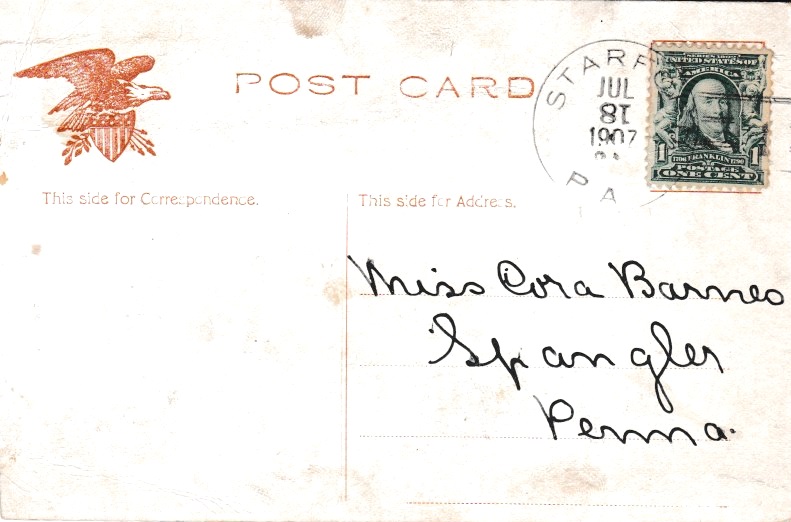 POST CARD
STARF
JUL
18
1907
PA
SERIES 1902
UNITED STATES OF
AMERICA
1 1706 FRANKLIN 1790 1
POSTAGE
ONE CENT
This side for Correspondence.
This side for Address.
Miss Cora Barnes
Spangler
Penna.